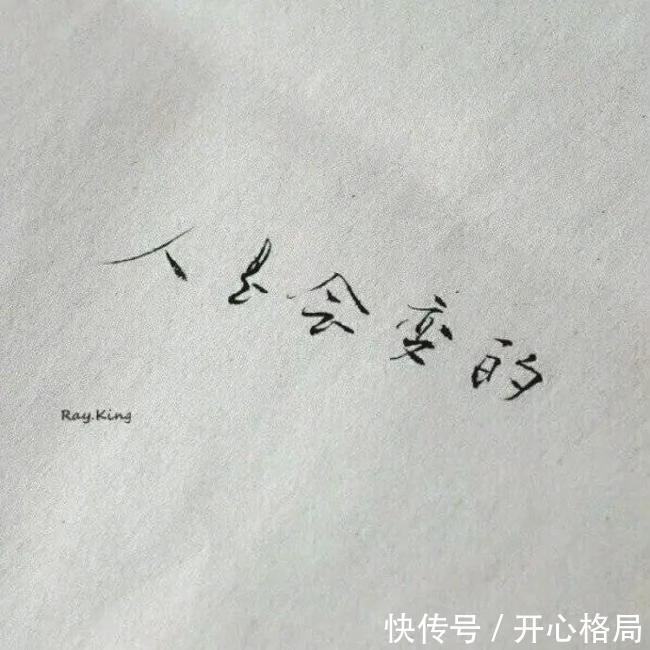 人是会变的
Ray.King
快传号 / 开心格局